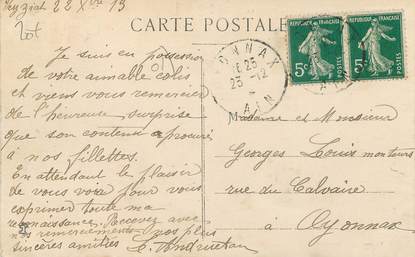 Veyziat 22 Xbre 13
CARTE POSTALE
Je suis en possession
de votre aimable colis
et viens vous remercier
de l'heureuse surprise
que son contenu a procuré
à nos fillettes.
En attendant le plaisir
de vous voir pour vous
exprimer toute ma
reconnaissance. Recevez avec
nos remerciements nos plus
sincères amitiés
OYONNAX
23 -12
AIN
REPUBLIQUE FRANÇAISE
5c POSTES
REPUBLIQUE FRANÇAISE
5c POSTES
Madame et Monsieur
Georges Louis monteurs
rue du Calvaire
à Oyonnax